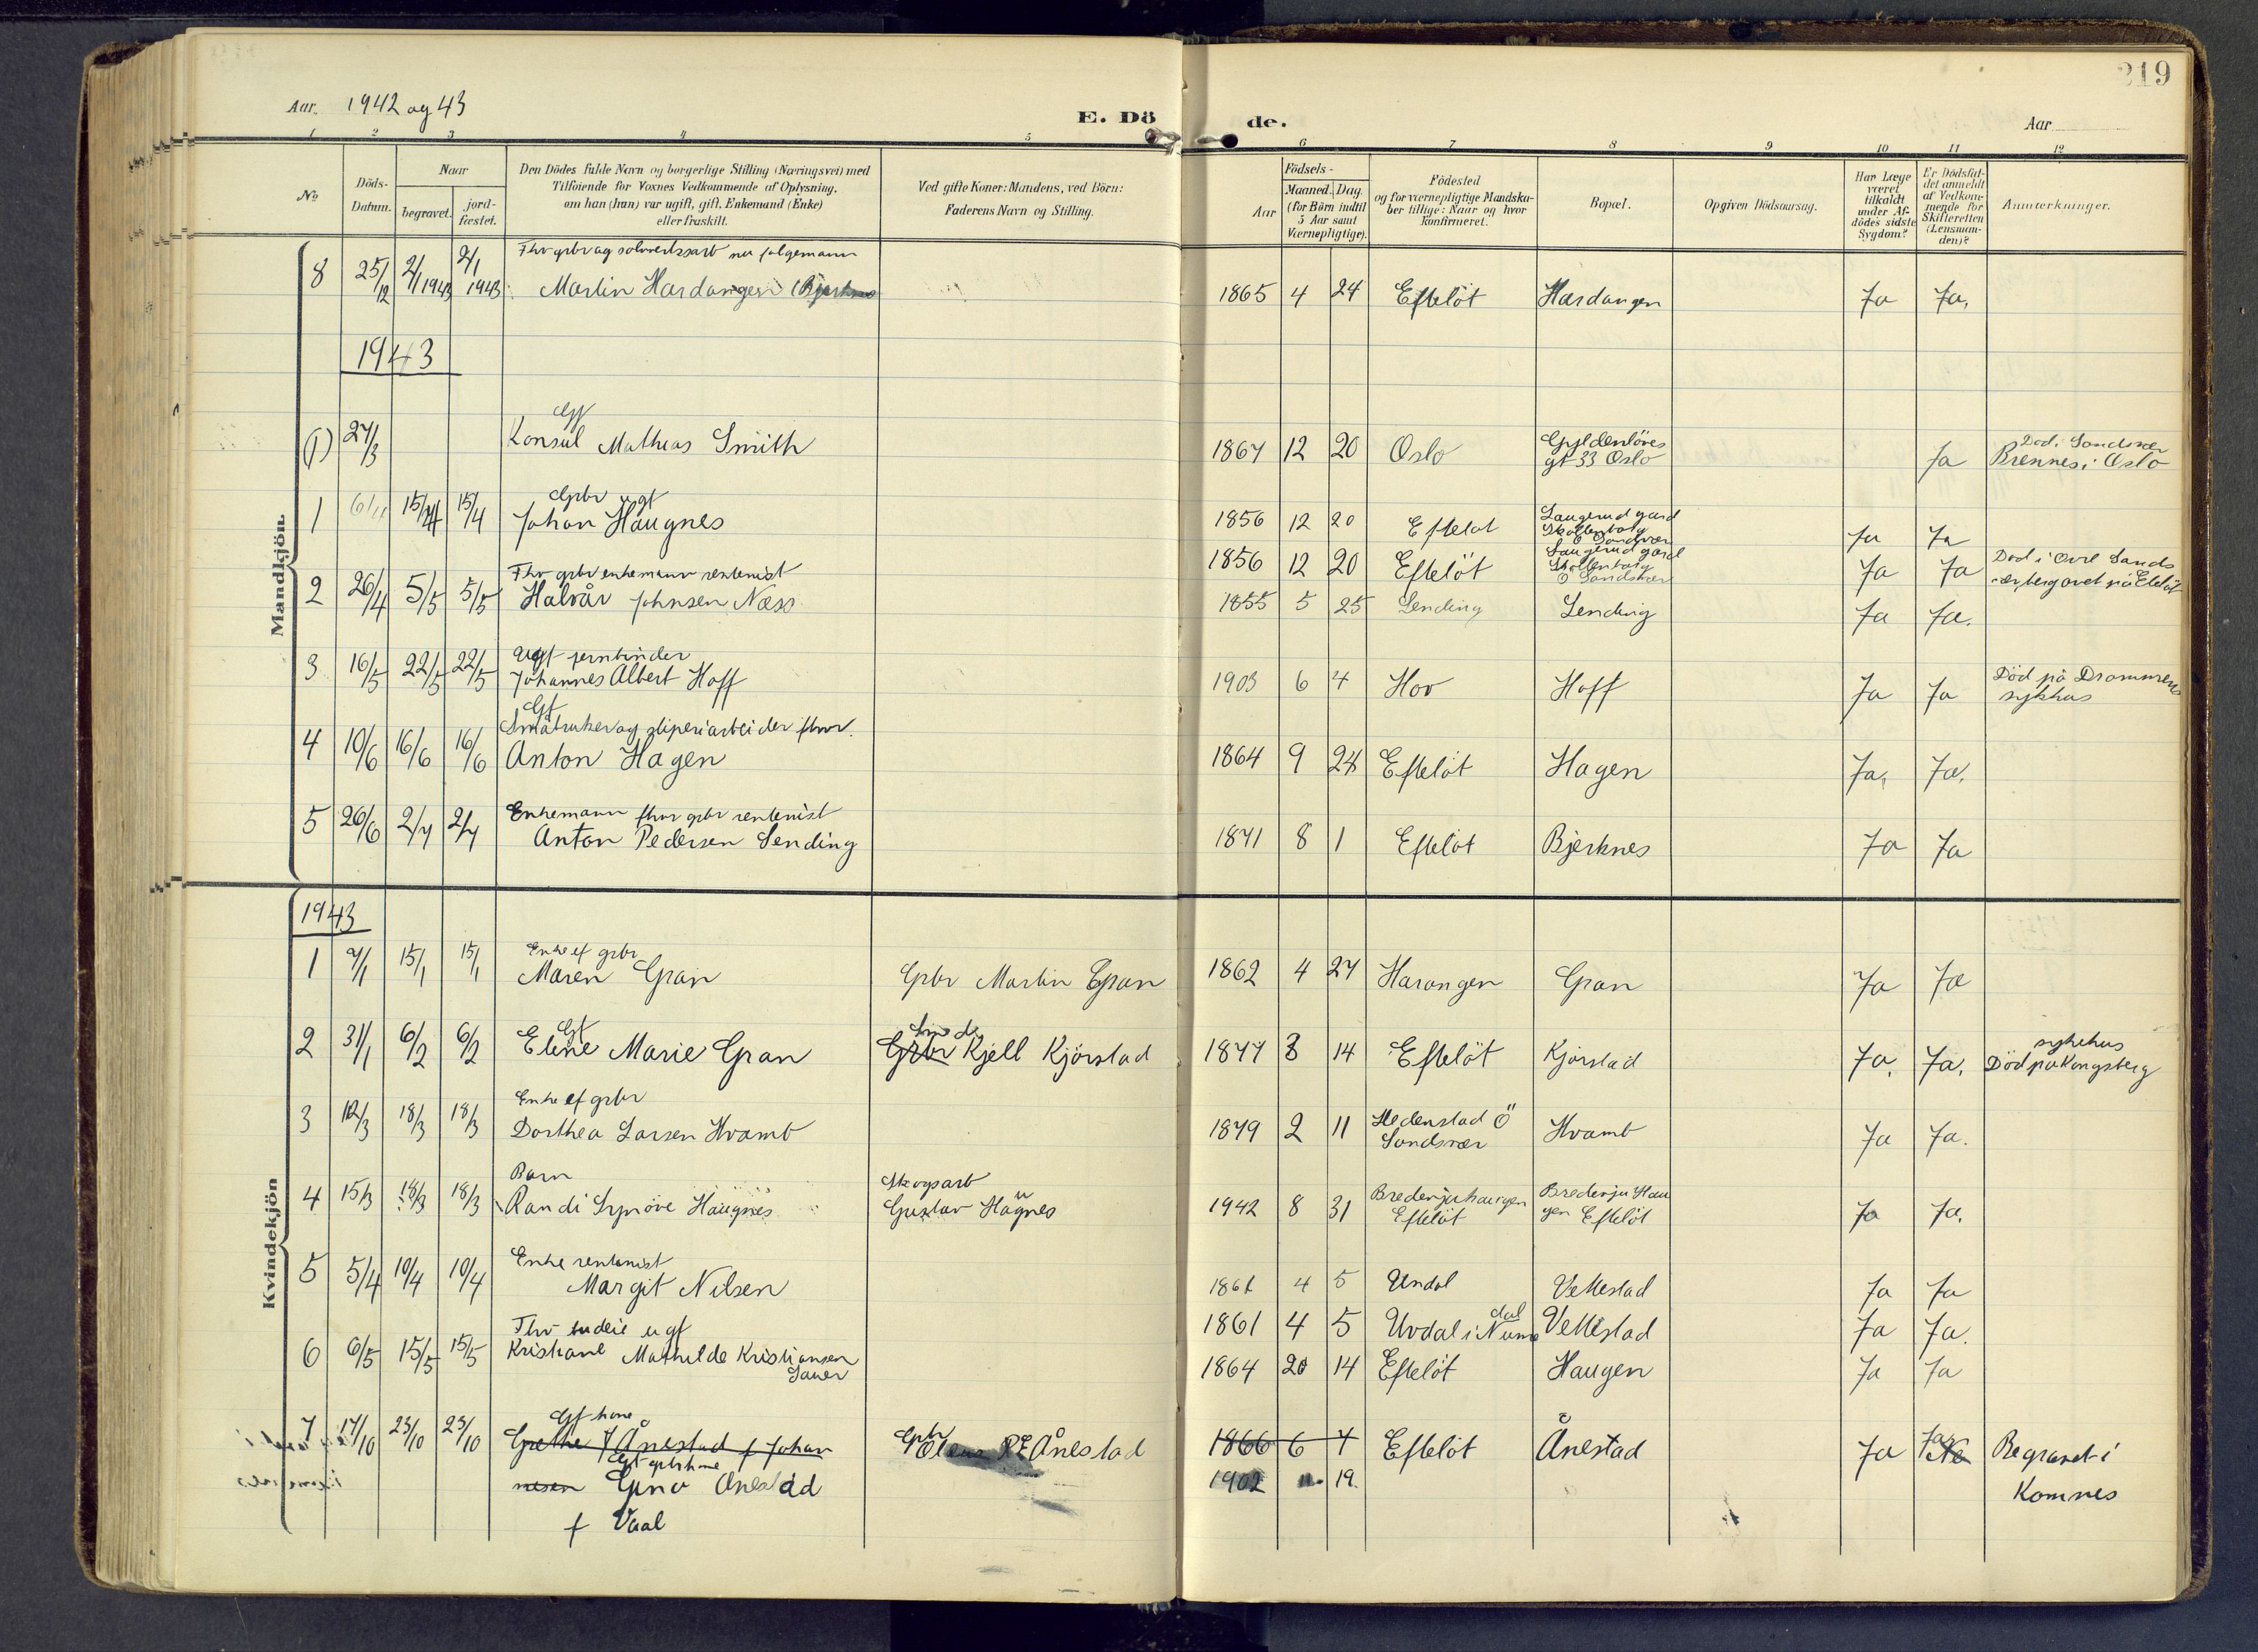 Aar. 1942 og 43
E. Dö
de.
219
Aar
1 2 3 4 5 6 7 8 9 10 11 12
No
Döds-
Datum.
Naar
begravet.
jord-
fæstet.
Den Dödes fulde Navn og borgerlige Stilling (Næringsvei) med
Tilföiende for Voxnes Vedkommende af Oplysning,
om han (hun) var ugift, gift, Enkemand (Enke)
eller fraskilt.
Ved gifte Koner: Mandens, ved Börn:
Faderens Navn og Stilling.
Födsels-
Aar
Maaned. Dag.
(for Börn indtil
5 Aar samt
Værnepligtige).
Födested
og for værnepligtige Mandska-
ber tillige: Naar og hvor
konfirmeret.
Bopæl.
Opgiven Dödsaarsag.
Har Læge
været
tilkaldt
under Af-
dödes sidste
Sygdom?
Er Dödsfal-
det anmeldt
af Vedkom-
mende for
Skifteretten
(Lensman-
den)?
Anmærkninger.
Mandkjön.
8 25/12 2/1 1943 2/1 1943 Martin Hardangen (Bjerknes 1865 4 24 Efteløt Hardangen Ja Ja.
1943
Gft
(1) 27/3 Konsul Mathias Smith 1867 12 20 Oslo Gyldenløves
gt 33 Oslo Ja Død i Sandsvær
Brennes i Oslo
Grbr ugt
1 6/11 15/4 15/4 Johan Haugnes 1856 12 20 Efteløt Laugerud gard
Skollenborg
Ø Sandsvær Ja Ja
1856 12 20 Efteløt Laugerud gard
Skollenborg
Ø Sandsvær Ja Ja Død i Øvre Sands
vær begravet på Efteløt
Fhv grbr enkemann rentenist
2 26/4 5/5 5/5 Halvår Johnsen Næss 1855 5 25 Sending Sending Ja Ja.
Ugft jernbinder
3 16/5 22/5 22/5 Johannes Albert Hoff 1903 6 4 Hov Hoff Ja Ja Död på Drammens
sykhus
Gf
Småbruker og sliperiarbeider fhvr.
4 10/6 16/6 16/6 Anton Hagen 1864 9 24 Efteløt Hagen Ja, Ja.
Enkemann fhvr grbr rentenist
5 26/6 2/7 2/7 Anton Pedersen Sending 1871 8 1 Efteløt Bjerknes Ja Ja
Kvindekjön
1943
Enke ef grbr
1 7/1 15/1 15/1 Maren Gran Grbr Martin Gran 1862 4 27 Harangen Gran Ja Ja
Gft
2 31/1 6/2 6/2 Eline Marie Gran Grbr Kjell Kjörstad 1877 8 14 Efteløt Kjörstad Ja. Ja. sykehus
Död på Kongsberg
Enke ef grbr
3 12/3 18/3 18/3 Dorthea Larsen Hvamb 1879 2 11 Hedenstad Ö
Sandsvær Hvamb Ja Ja.
Barn
4 15/3 18/3 18/3 Randi Synöve Haugnes Skogsarb
Gustav Haugnes 1942 8 31 Bredenjuhaugen
Efteløt Bredenju Hau
gen Efteløt Ja Ja.
Enke rentenist
5 5/4 10/4 10/4 Margit Nilsen 1861 4 5 Undal Vettestad Ja Ja
1861 4 5 Uvdal i Numedal Vettestad Ja Ja.
Fhv budeie ugf
6 6/5 15/5 15/5 Kristiane Mathilde Kristiansen
Sauer 1864 20 14 Efteløt Haugen Ja Ja
Gft kone
7 17/10 23/10 23/10 Grethe Ånestad f Johan
nesen Gft grbr kone Gina Ånestad
f Vaal
Grbr Ånestad 1866 6 7 Efteløt Ånestad Ja Ja Begravet i
Komnes
1902 11. 19.